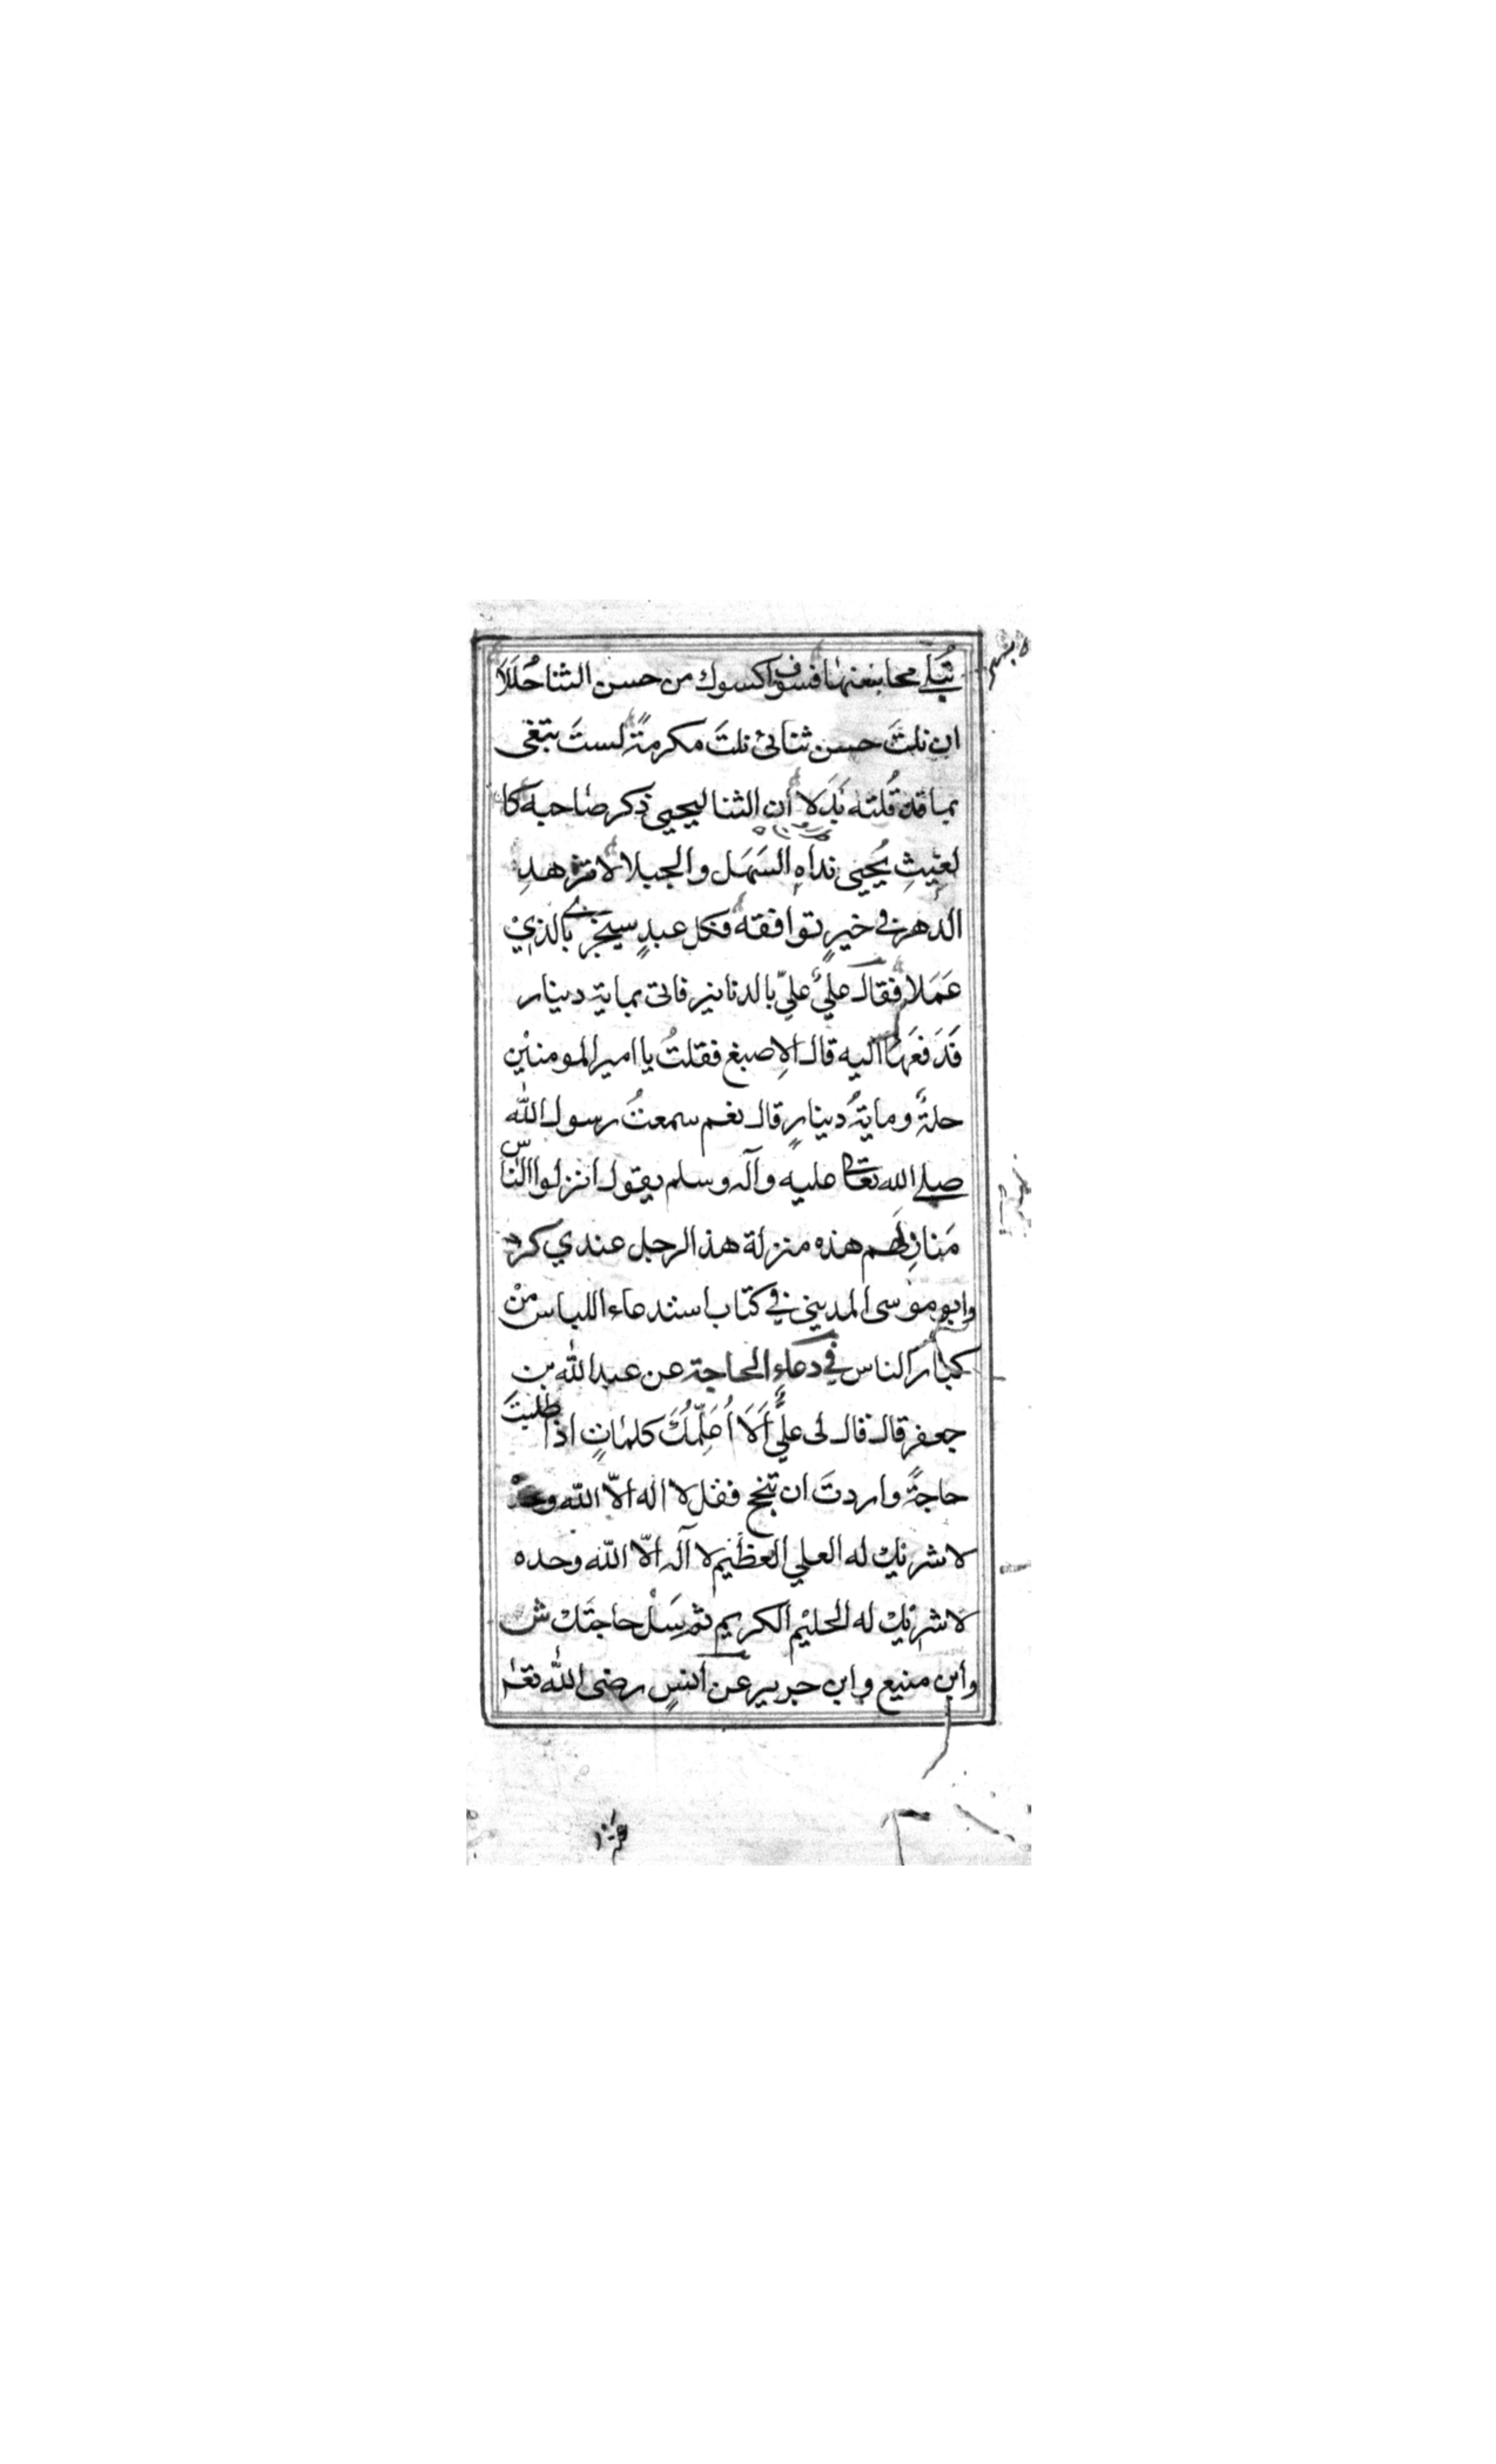 تُبلَى محاسنها فسوف اكسوك من حسن الثنا حُلَلَا
ان نلتَ حسن ثنائي نلتَ مكرمةً لستَ تبغي
بما قد قُلته بَدَلا أن الثنا ليحيى ذكر صاحبه كا
لغيثِ يُحيى نداهِ السَهَل والجبلا لا تزهدِ
الدهر في خيرٍ توافقه فكل عبدٍ سيجزى بالذيْ
عَمَلا فقال عليٌ عليّ بالدنانير فاتى بماية دينار
فَدَفعَها اليه قال الاِصبغ فقلتُ يا امير المومنين
حلةً وماية دينارٍ قال نعم سمعتُ رسول الله
صلى الله تعالى عليه وآله وسلم يقول انزلوا الناس
مَنازِلَهم هذه منزلة هذا الرجل عندي كرد
وابو موسى المديني في كتاب استدعاء اللباس منْ
كبار الناس في دعاءِ الحاجة عن عبد الله بن
جعفر قال قال لى عليٌّ أَلَا اُعَلِّمُكَ كلماتٍ اذا طلبتَ
حاجةً واردتَ ان تنجح فقل لا اله الّا الله وحده
لا شريك له العلي العظيم لا آله الّا الله وحده
لا شريك له الحليم الكريم ثم سَلْ حاجتَك ش
وأبن منيع وابن جرير عن أنسٍ رضى الله تعا